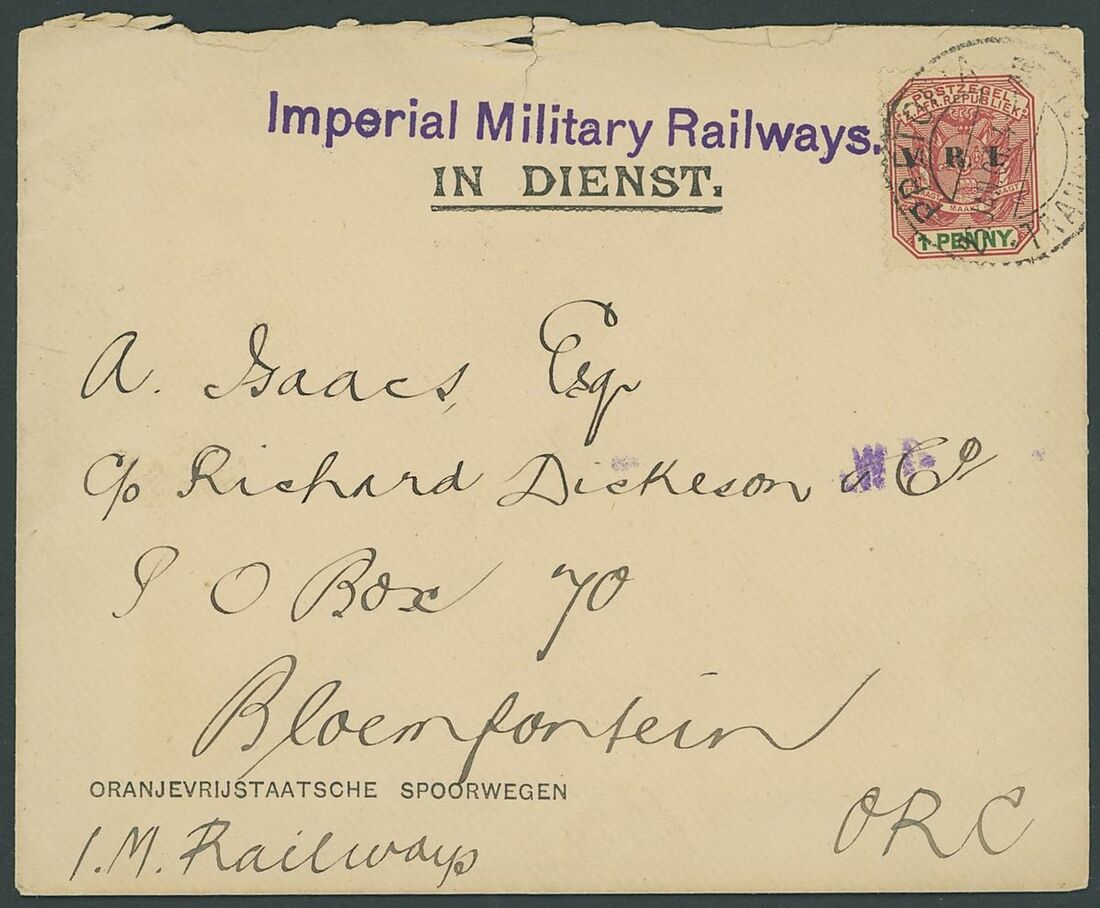 Imperial Military Railways.
IN DIENST.
POSTZEGEL
Z. AFR. REPUBLIEK
V. R. I.
MAAKT MAGT
1 PENNY.
PRETORIA
TRANSVAAL
A. Isaacs, Esq
c/o Richard Dickeson & Co
P O Box 70
Bloemfontein
ORANJEVRIJSTAATSCHE SPOORWEGEN
I.M. Railways
ORC